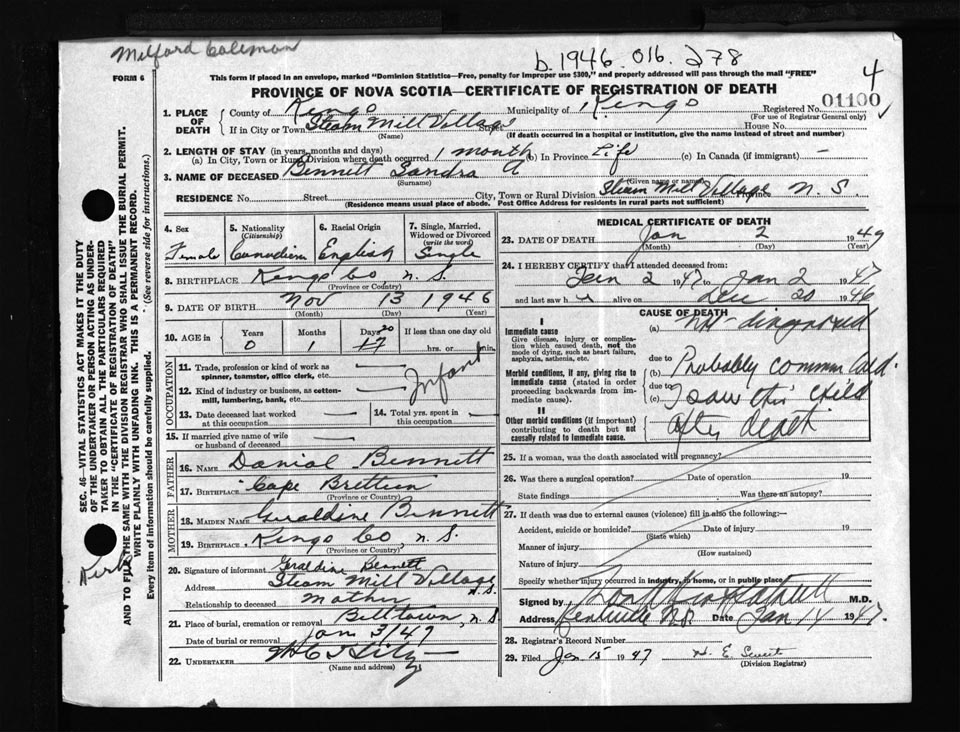 Milford Coleman
b.1946. 016. 278
4
FORM 6
This form if placed in an envelope, marked "Dominion Statistics—Free, penalty for improper use $300," and properly addressed will pass through the mail "FREE"
PROVINCE OF NOVA SCOTIA—CERTIFICATE OF REGISTRATION OF DEATH
1. PLACE OF DEATH County of Kings Municipality of Kings Registered No. 01100
(For use of Registrar General only)
If in City or Town Steam Mill Village Street House No.
(Name) (If death occurred in a hospital or institution, give the name instead of street and number)
2. LENGTH OF STAY (in years, months and days)
(a) In City, Town or Rural Division where death occurred 1 month (b) In Province Life (c) In Canada (if immigrant) —
3. NAME OF DECEASED Bennett Sandra A
(Surname) (Given name or names)
RESIDENCE No. Street City, Town or Rural Division Steam Mill Village Province N. S.
(Residence means usual place of abode. Post Office Address for residents in rural parts not sufficient)
4. Sex 5. Nationality (Citizenship) 6. Racial Origin 7. Single, Married, Widowed or Divorced (write the word)
Female Canadian English Single
8. BIRTHPLACE Kings Co N. S.
(Province or Country)
9. DATE OF BIRTH Nov 13 1946
(Month) (Day) (Year)
10. AGE in Years Months Days If less than one day old
0 1 17 20 hrs. or min.
OCCUPATION
11. Trade, profession or kind of work as spinner, teamster, office clerk, etc. —
12. Kind of industry or business, as cotton-mill, lumbering, bank, etc. — Infant
13. Date deceased last worked at this occupation — 14. Total yrs. spent in this occupation —
15. If married give name of wife or husband of deceased —
FATHER
16. NAME Danial Bennett
17. BIRTHPLACE Cape Bretten
(Province or Country)
MOTHER
18. MAIDEN NAME Geraldine Bennett
19. BIRTHPLACE Kings Co, N. S.
(Province or Country)
20. Signature of informant Geraldine Bennett
Address Steam Mill Village N.S.
Relationship to deceased Mother
21. Place of burial, cremation or removal Billtown, N. S
Date of burial or removal Jan 3/47
22. UNDERTAKER
(Name and address)
MEDICAL CERTIFICATE OF DEATH
23. DATE OF DEATH Jan 2 1949
(Month) (Day) (Year)
24. I HEREBY CERTIFY that I attended deceased from:
Jan 2 1947 to Jan 2 1947
and last saw h alive on Dec 20 1946
CAUSE OF DEATH
I
Immediate cause
Give disease, injury or complication which caused death, not the mode of dying, such as heart failure, asphyxia, asthenia, etc.
(a) not diagnosed
due to
Morbid conditions, if any, giving rise to immediate cause (stated in order proceeding backwards from immediate cause).
(b) Probably common cold.
due to
(c) I saw this child
II
Other morbid conditions (if important) contributing to death but not causally related to immediate cause.
after death
25. If a woman, was the death associated with pregnancy?
26. Was there a surgical operation? Date of operation 19
State findings Was there an autopsy?
27. If death was due to external causes (violence) fill in also the following:—
Accident, suicide or homicide? Date of injury 19
(State which)
Manner of injury
(How sustained)
Nature of injury
Specify whether injury occurred in industry, in home, or in public place
Signed by M.D.
Address Kentville N.S. Date Jan 14 1947
28. Registrar's Record Number
29. Filed Jan 15 1947
(Division Registrar)
SEC. 46—VITAL STATISTICS ACT MAKES IT THE DUTY
OF THE UNDERTAKER OR PERSON ACTING AS UNDER-
TAKER TO OBTAIN ALL THE PARTICULARS REQUIRED
IN THE "CERTIFICATE OF REGISTRATION OF DEATH"
AND TO FILE THE SAME WITH THE DIVISION REGISTRAR WHO SHALL ISSUE THE BURIAL PERMIT.
WRITE PLAINLY WITH UNFADING INK. THIS IS A PERMANENT RECORD.
Every item of information should be carefully supplied. (See reverse side for instructions.)